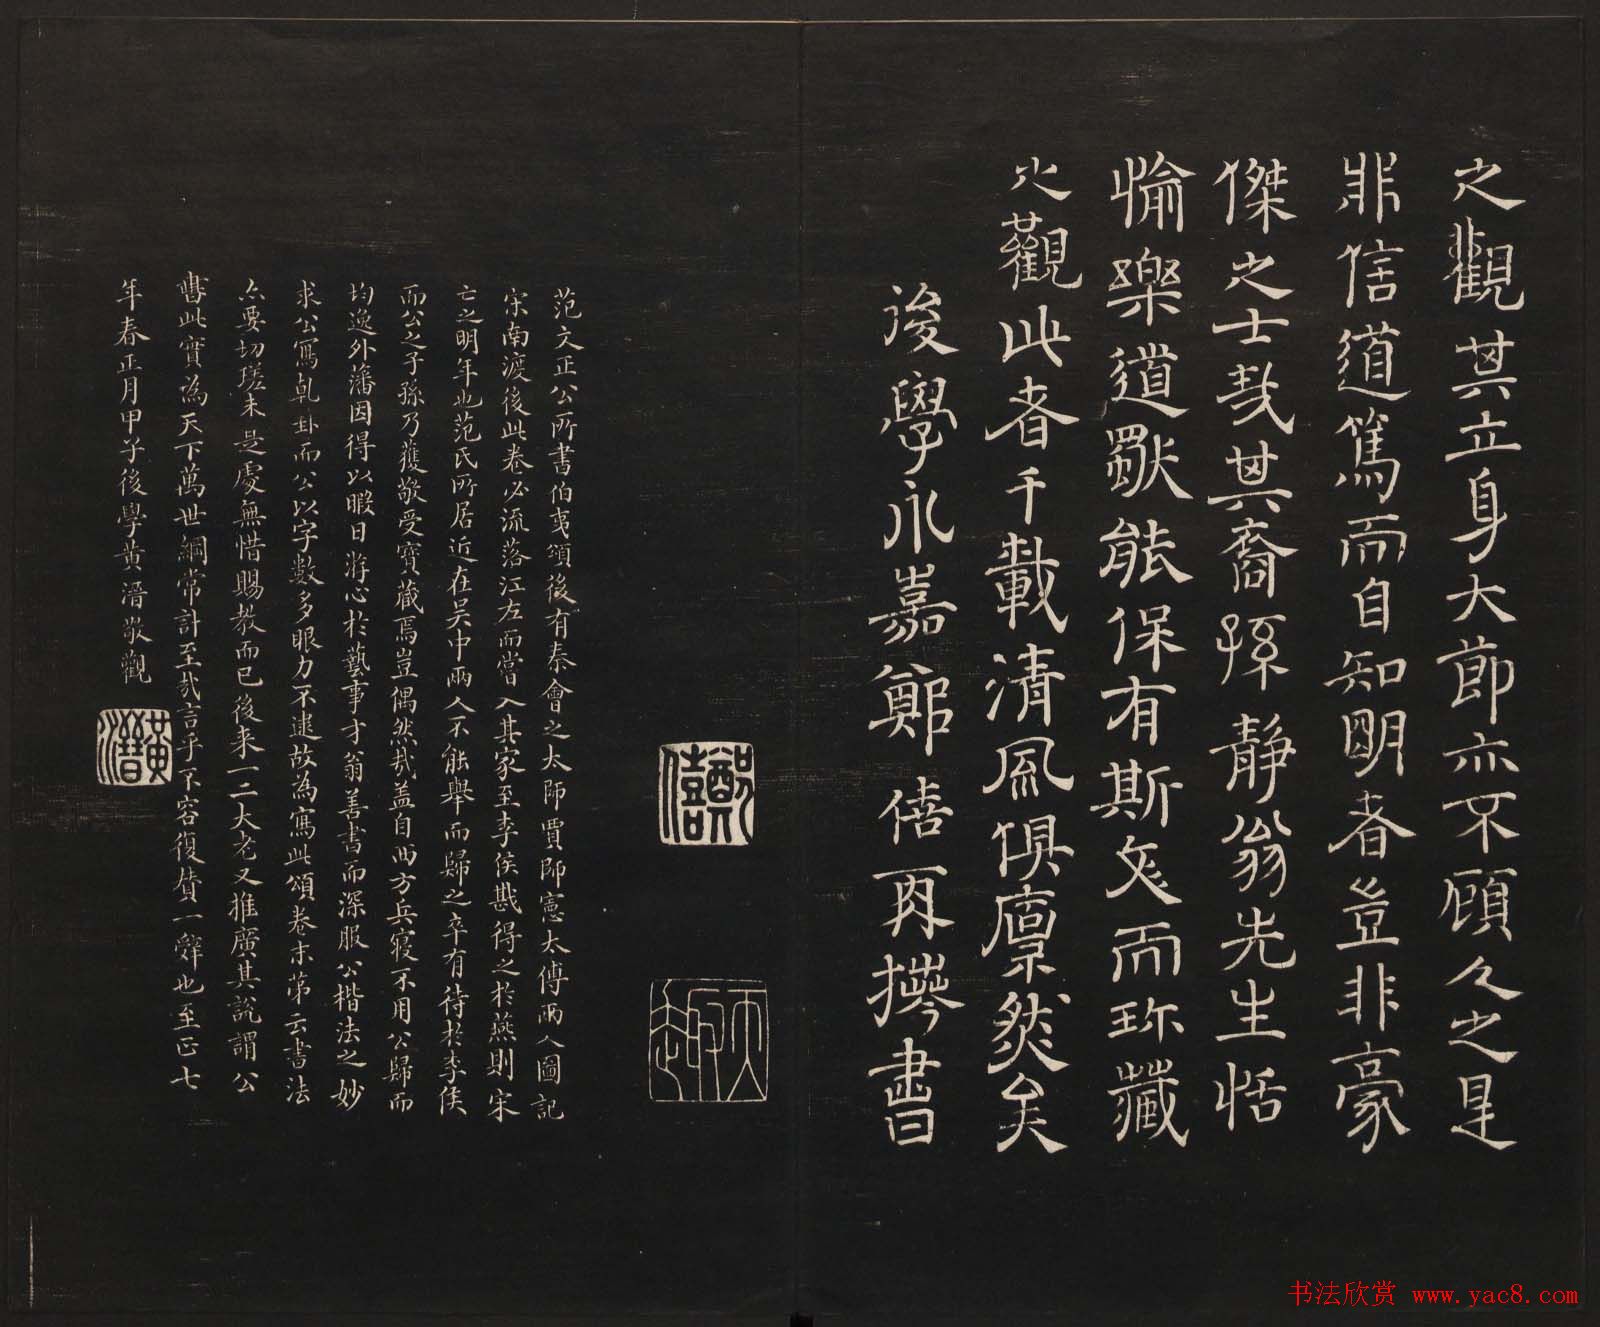 之觀其立身大節亦不顧人之是
非信道篤而自知明者豈非豪
傑之士哉其裔孫靜翁先生恬
愉樂道歜能保有斯文而珎藏
之觀此者千載清風俱凛然矣
後學永嘉鄭僖再拜書
范文正公所書伯夷頌後有秦會之太師賈師憲太傅兩人圖記
宋南渡後此卷必流落江左而嘗入其家至李侯戡得之於燕則宋
亡之明年也范氏所居近在吴中兩人不能舉而歸之卒有待於李侯
而公之子孫乃獲敬受寶藏焉豈偶然哉盖自西方兵寢不用公歸而
均逸外藩因得以暇日游心於藝事才翁善書而深服公楷法之妙
求公寫乹卦而公以字數多眼力不逮故為寫此頌卷末苐云書法
亦要切瑳未是處無惜賜教而已後来一二大老又推廣其說謂公
書此實為天下萬世綱常計至哉言乎不容復賛一辭也至正七
年春正月甲子後學黄溍敬觀
黄溍
鄭僖
书法欣赏 www.yac8.com